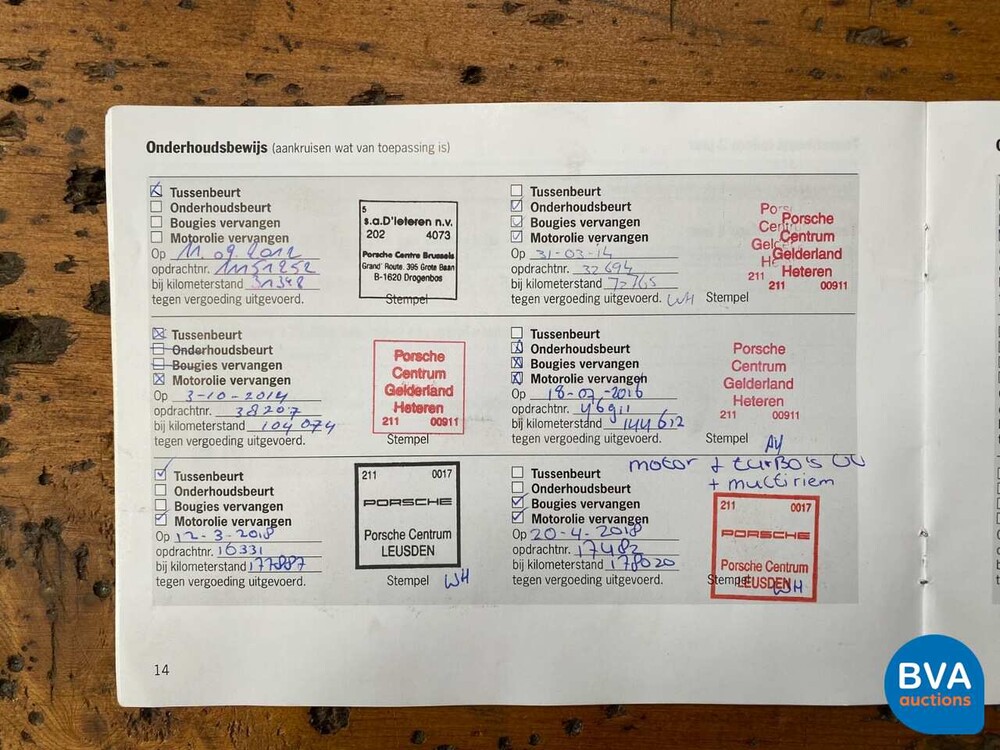 Onderhoudsbewijs (aankruisen wat van toepassing is)
Tussenbeurt
Onderhoudsbeurt
Bougies vervangen
Motorolie vervangen
Op 11.09.2012
opdrachtnr. 1151252
bij kilometerstand 31348
tegen vergoeding uitgevoerd.
Stempel
5
s.a.D'Ieteren n.v.
202 4073
Porsche Centre Brussels
Grand' Route. 395 Grote Baan
B-1620 Drogenbos
Tussenbeurt
Onderhoudsbeurt
Bougies vervangen
Motorolie vervangen
Op 31-03-14
opdrachtnr. 32694
bij kilometerstand
tegen vergoeding uitgevoerd. WH
Stempel
Porsche
Centrum
Gelderland
Heteren
211 00911
Tussenbeurt
Onderhoudsbeurt
Bougies vervangen
Motorolie vervangen
Op 3-10-2014
opdrachtnr. 38207
bij kilometerstand 104074
tegen vergoeding uitgevoerd.
Stempel
Porsche
Centrum
Gelderland
Heteren
211 00911
Tussenbeurt
Onderhoudsbeurt
Bougies vervangen
Motorolie vervangen
Op 18-07-2016
opdrachtnr. 46911
bij kilometerstand 144612
tegen vergoeding uitgevoerd.
Stempel
Porsche
Centrum
Gelderland
Heteren
211 00911
Tussenbeurt
Onderhoudsbeurt
Bougies vervangen
Motorolie vervangen
Op 12-3-2018
opdrachtnr. 16331
bij kilometerstand 177887
tegen vergoeding uitgevoerd.
Stempel WH
211 0017
PORSCHE
Porsche Centrum
LEUSDEN
motor + turbo's
+ multiriem
Tussenbeurt
Onderhoudsbeurt
Bougies vervangen
Motorolie vervangen
Op 20-4-2018
opdrachtnr. 17482
bij kilometerstand 178020
tegen vergoeding uitgevoerd.
Stempel WH
211 0017
PORSCHE
Porsche Centrum
LEUSDEN
14
BVA
auctions